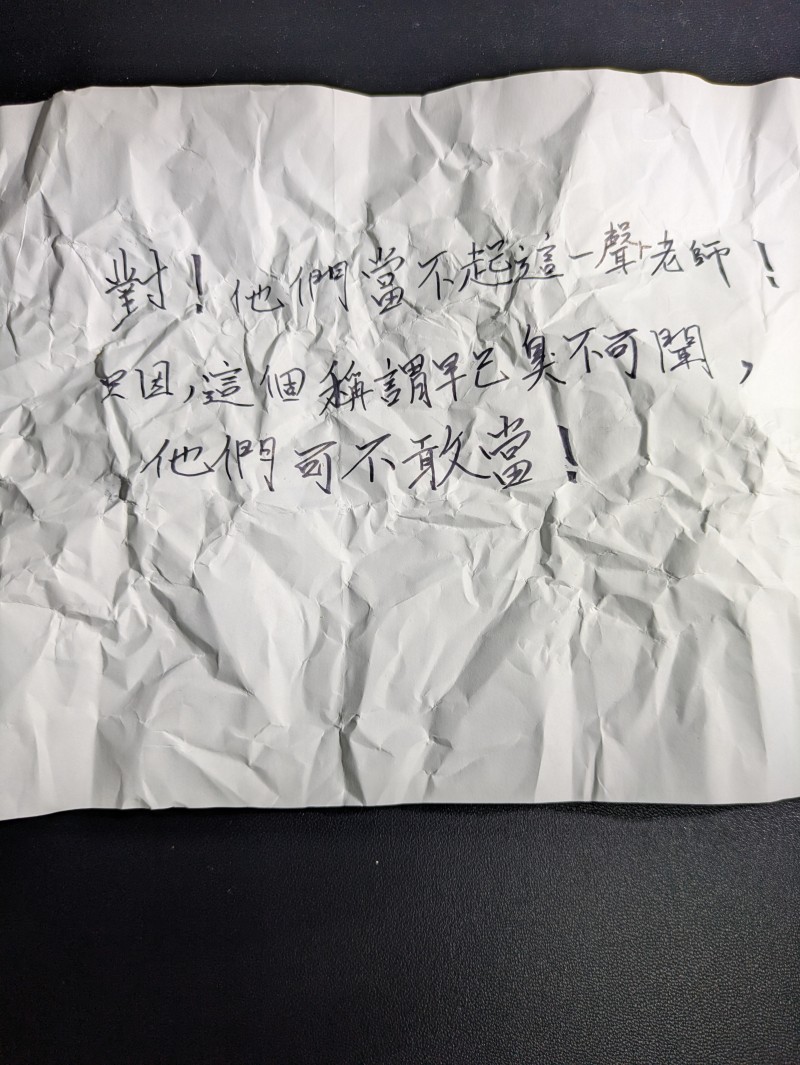 對！他們當不起這一聲老師！
只因,這個稱謂早已臭不可聞，
他們可不敢當！